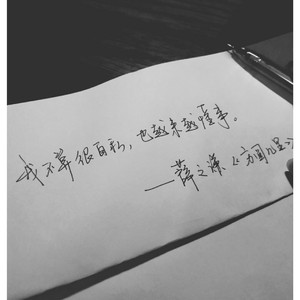 我不算很自私，也越来越懂事。
——薛之谦《方圆几里